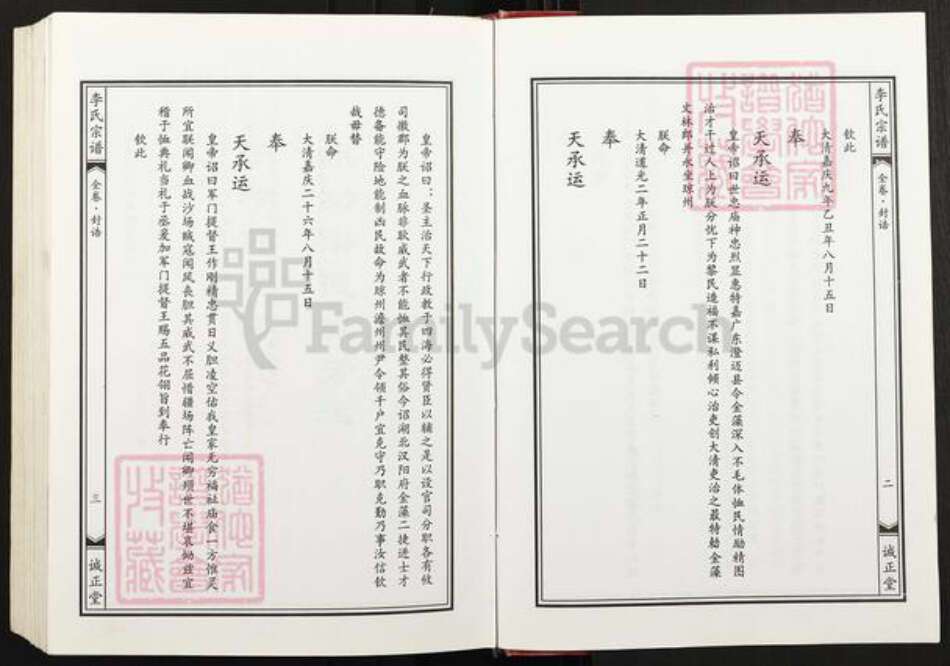 李氏宗谱
金卷·封诰
二
诚正堂
钦此
大清嘉庆九年乙丑年八月十五日
奉
天承运
皇帝诏曰世忠庙神忠烈显惠特嘉广东澄迈县令金藻深入不毛体恤民情励精图
治才干过人上为朕分忧下为黎民造福不谋私利倾心治吏创大清吏治之最特敕金藻
文林郎并永坐琼州
朕命
大清道光二年正月二十二日
奉
天承运
皇帝诏曰：圣主治天下行政教于四海必得贤臣以辅之是以设官司分职各有攸
司徽郡为朕之血脉非耿威武者不能恤其民整其俗今诏湖北汉阳府金藻二捷进士才
德备能守险地能制凶民故命为琼州儋州州尹令领千户宜克守乃职克勤乃事汝信钦
哉毋替
朕命
大清嘉庆二十六年八月十五日
奉
天承运
皇帝诏曰军门提督王作刚精忠贯日义胆凌空佑我皇家无穷福祉庙食一方惟灵
所宜朕闻卿血战沙场贼寇闻风丧胆其威武不屈惜疆场阵亡闻卿殒世不堪哀恸兹宜
稽于恤典礼当礼于丞爰加军门提督王赐五品花翎旨到奉行
钦此
李氏宗谱
金卷·封诰
三
诚正堂
FamilySearch